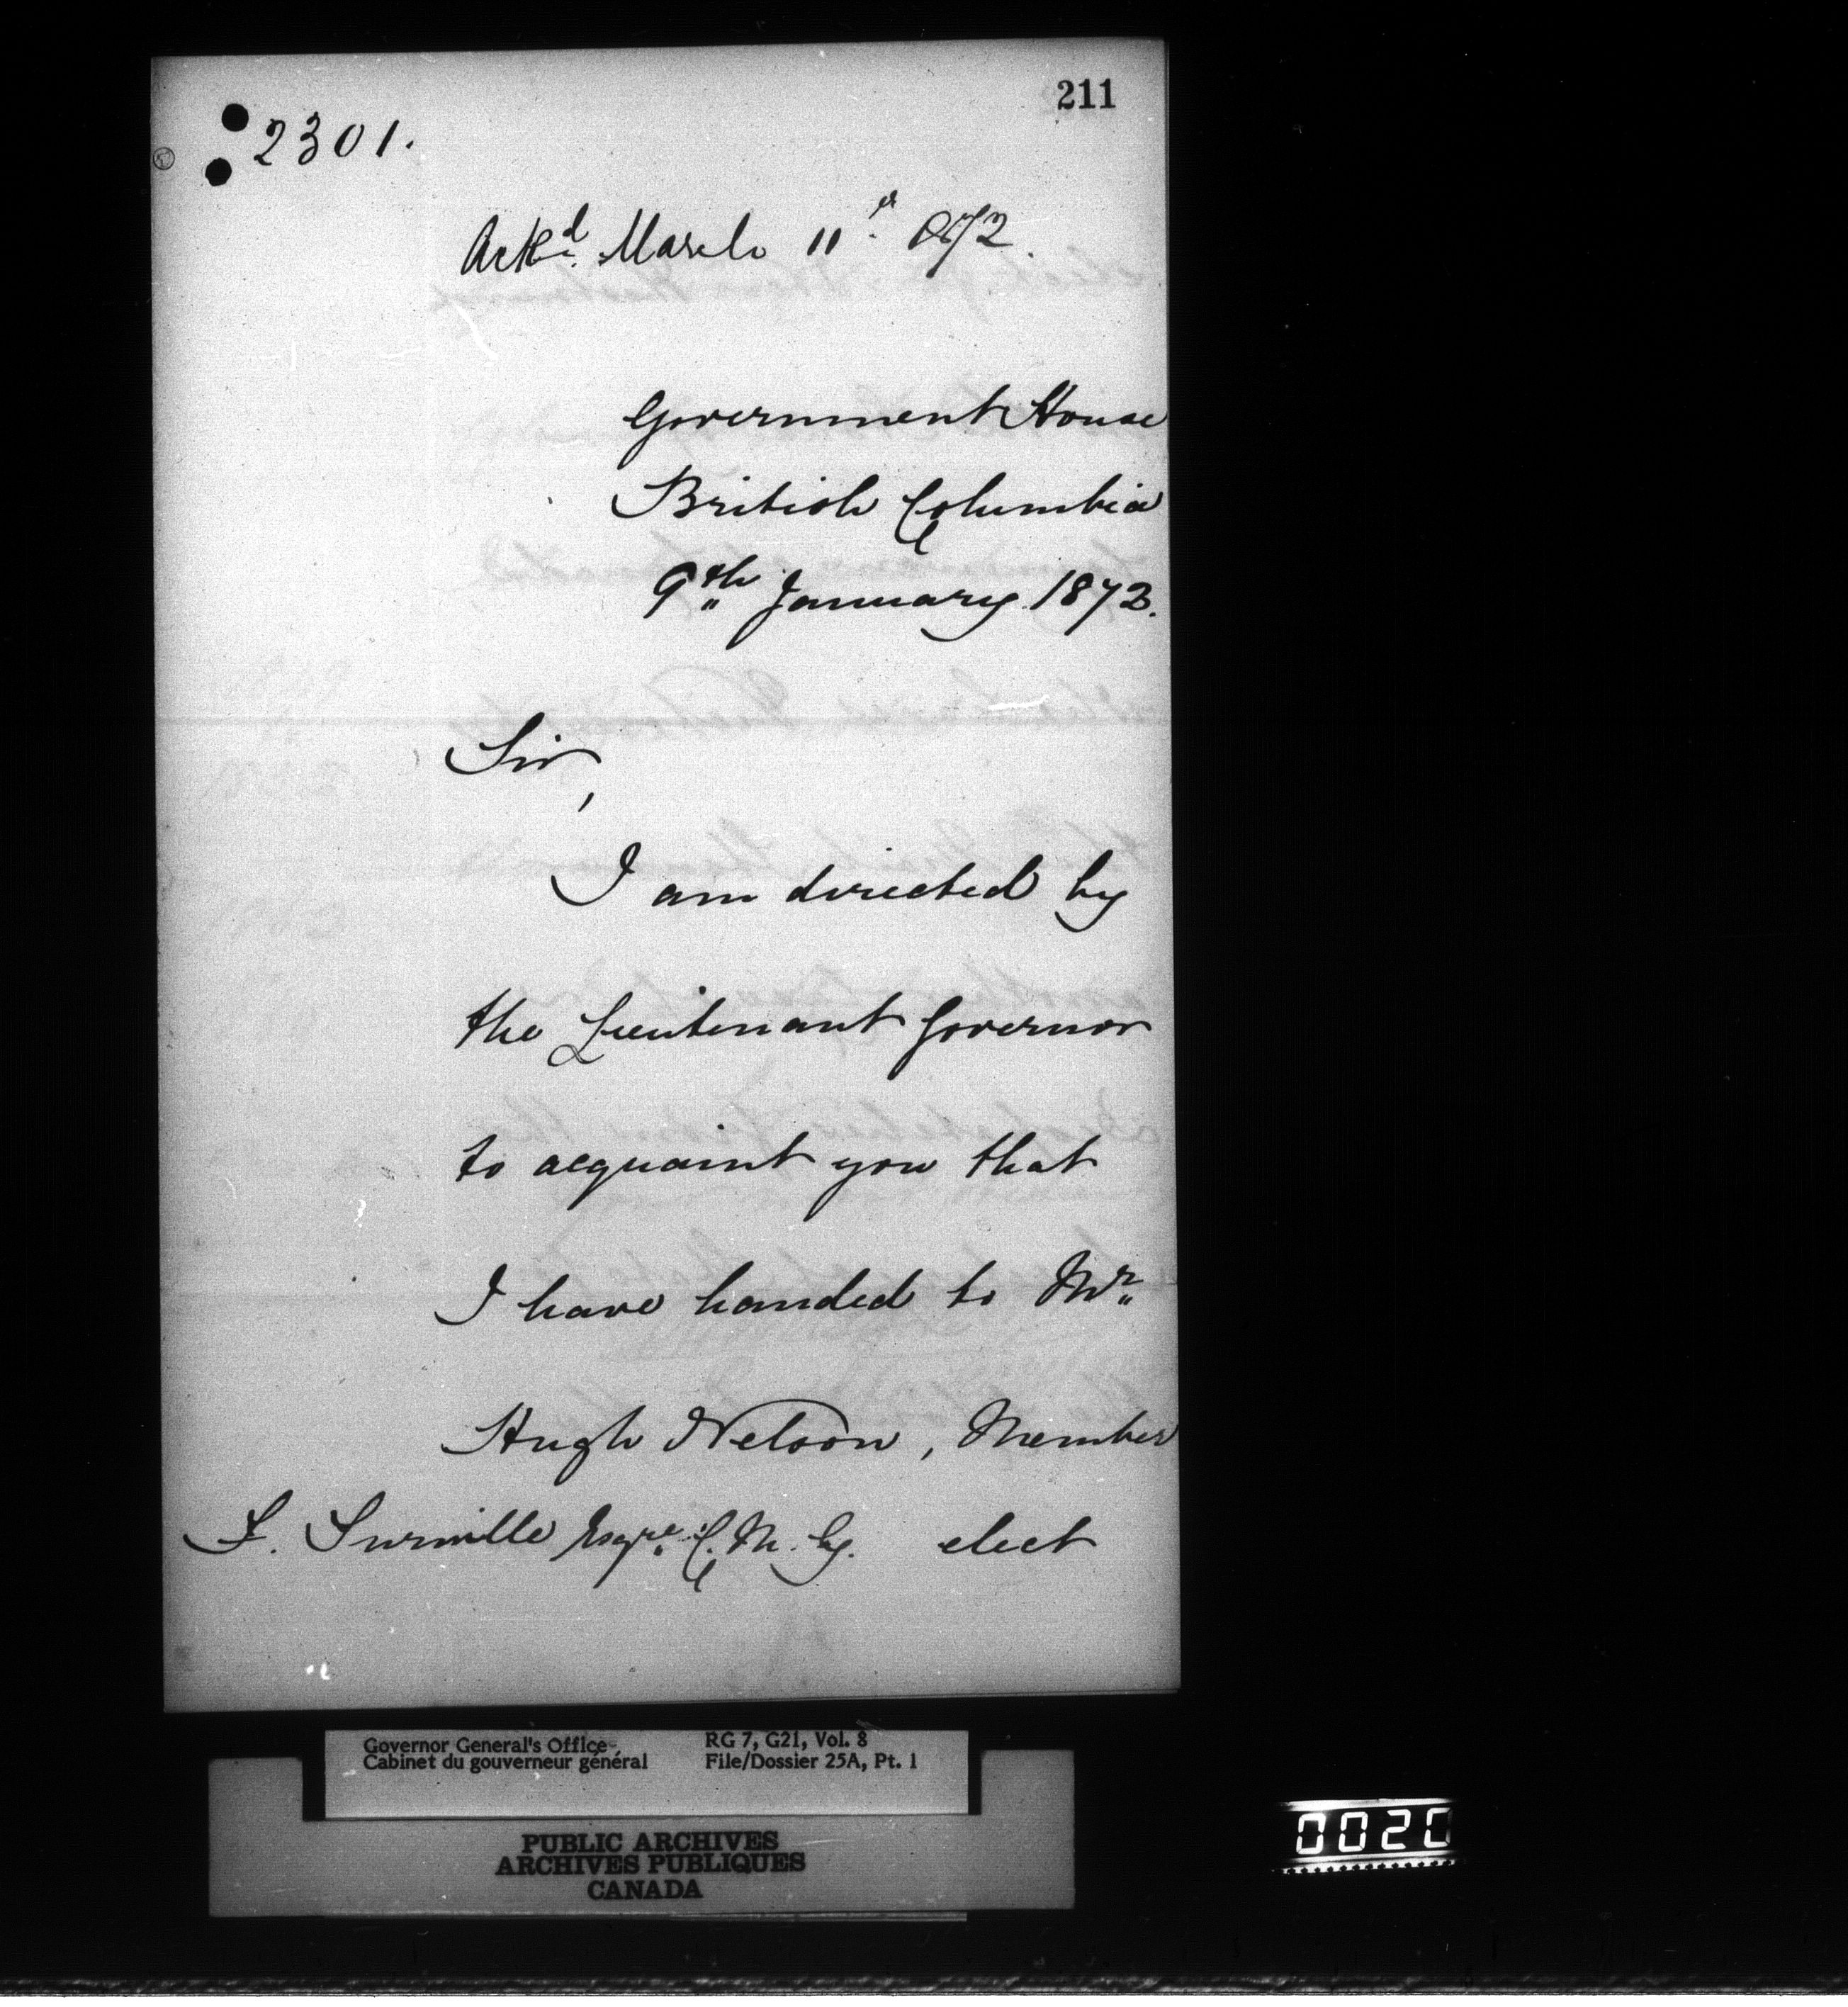 211
2301.
Ackd. March 11th 1872.
Government House
British Columbia
9th January 1872.
Sir,
I am directed by
the Lieutenant Governor
to acquaint you that
I have handed to Mr.
Hugh Nelson, Member
F. Turville Esqre. C.M.G. elect
Governor General's Office
Cabinet du gouverneur général
RG 7, G21, Vol. 8
File/Dossier 25A, Pt. 1
PUBLIC ARCHIVES
ARCHIVES PUBLIQUES
CANADA
0020